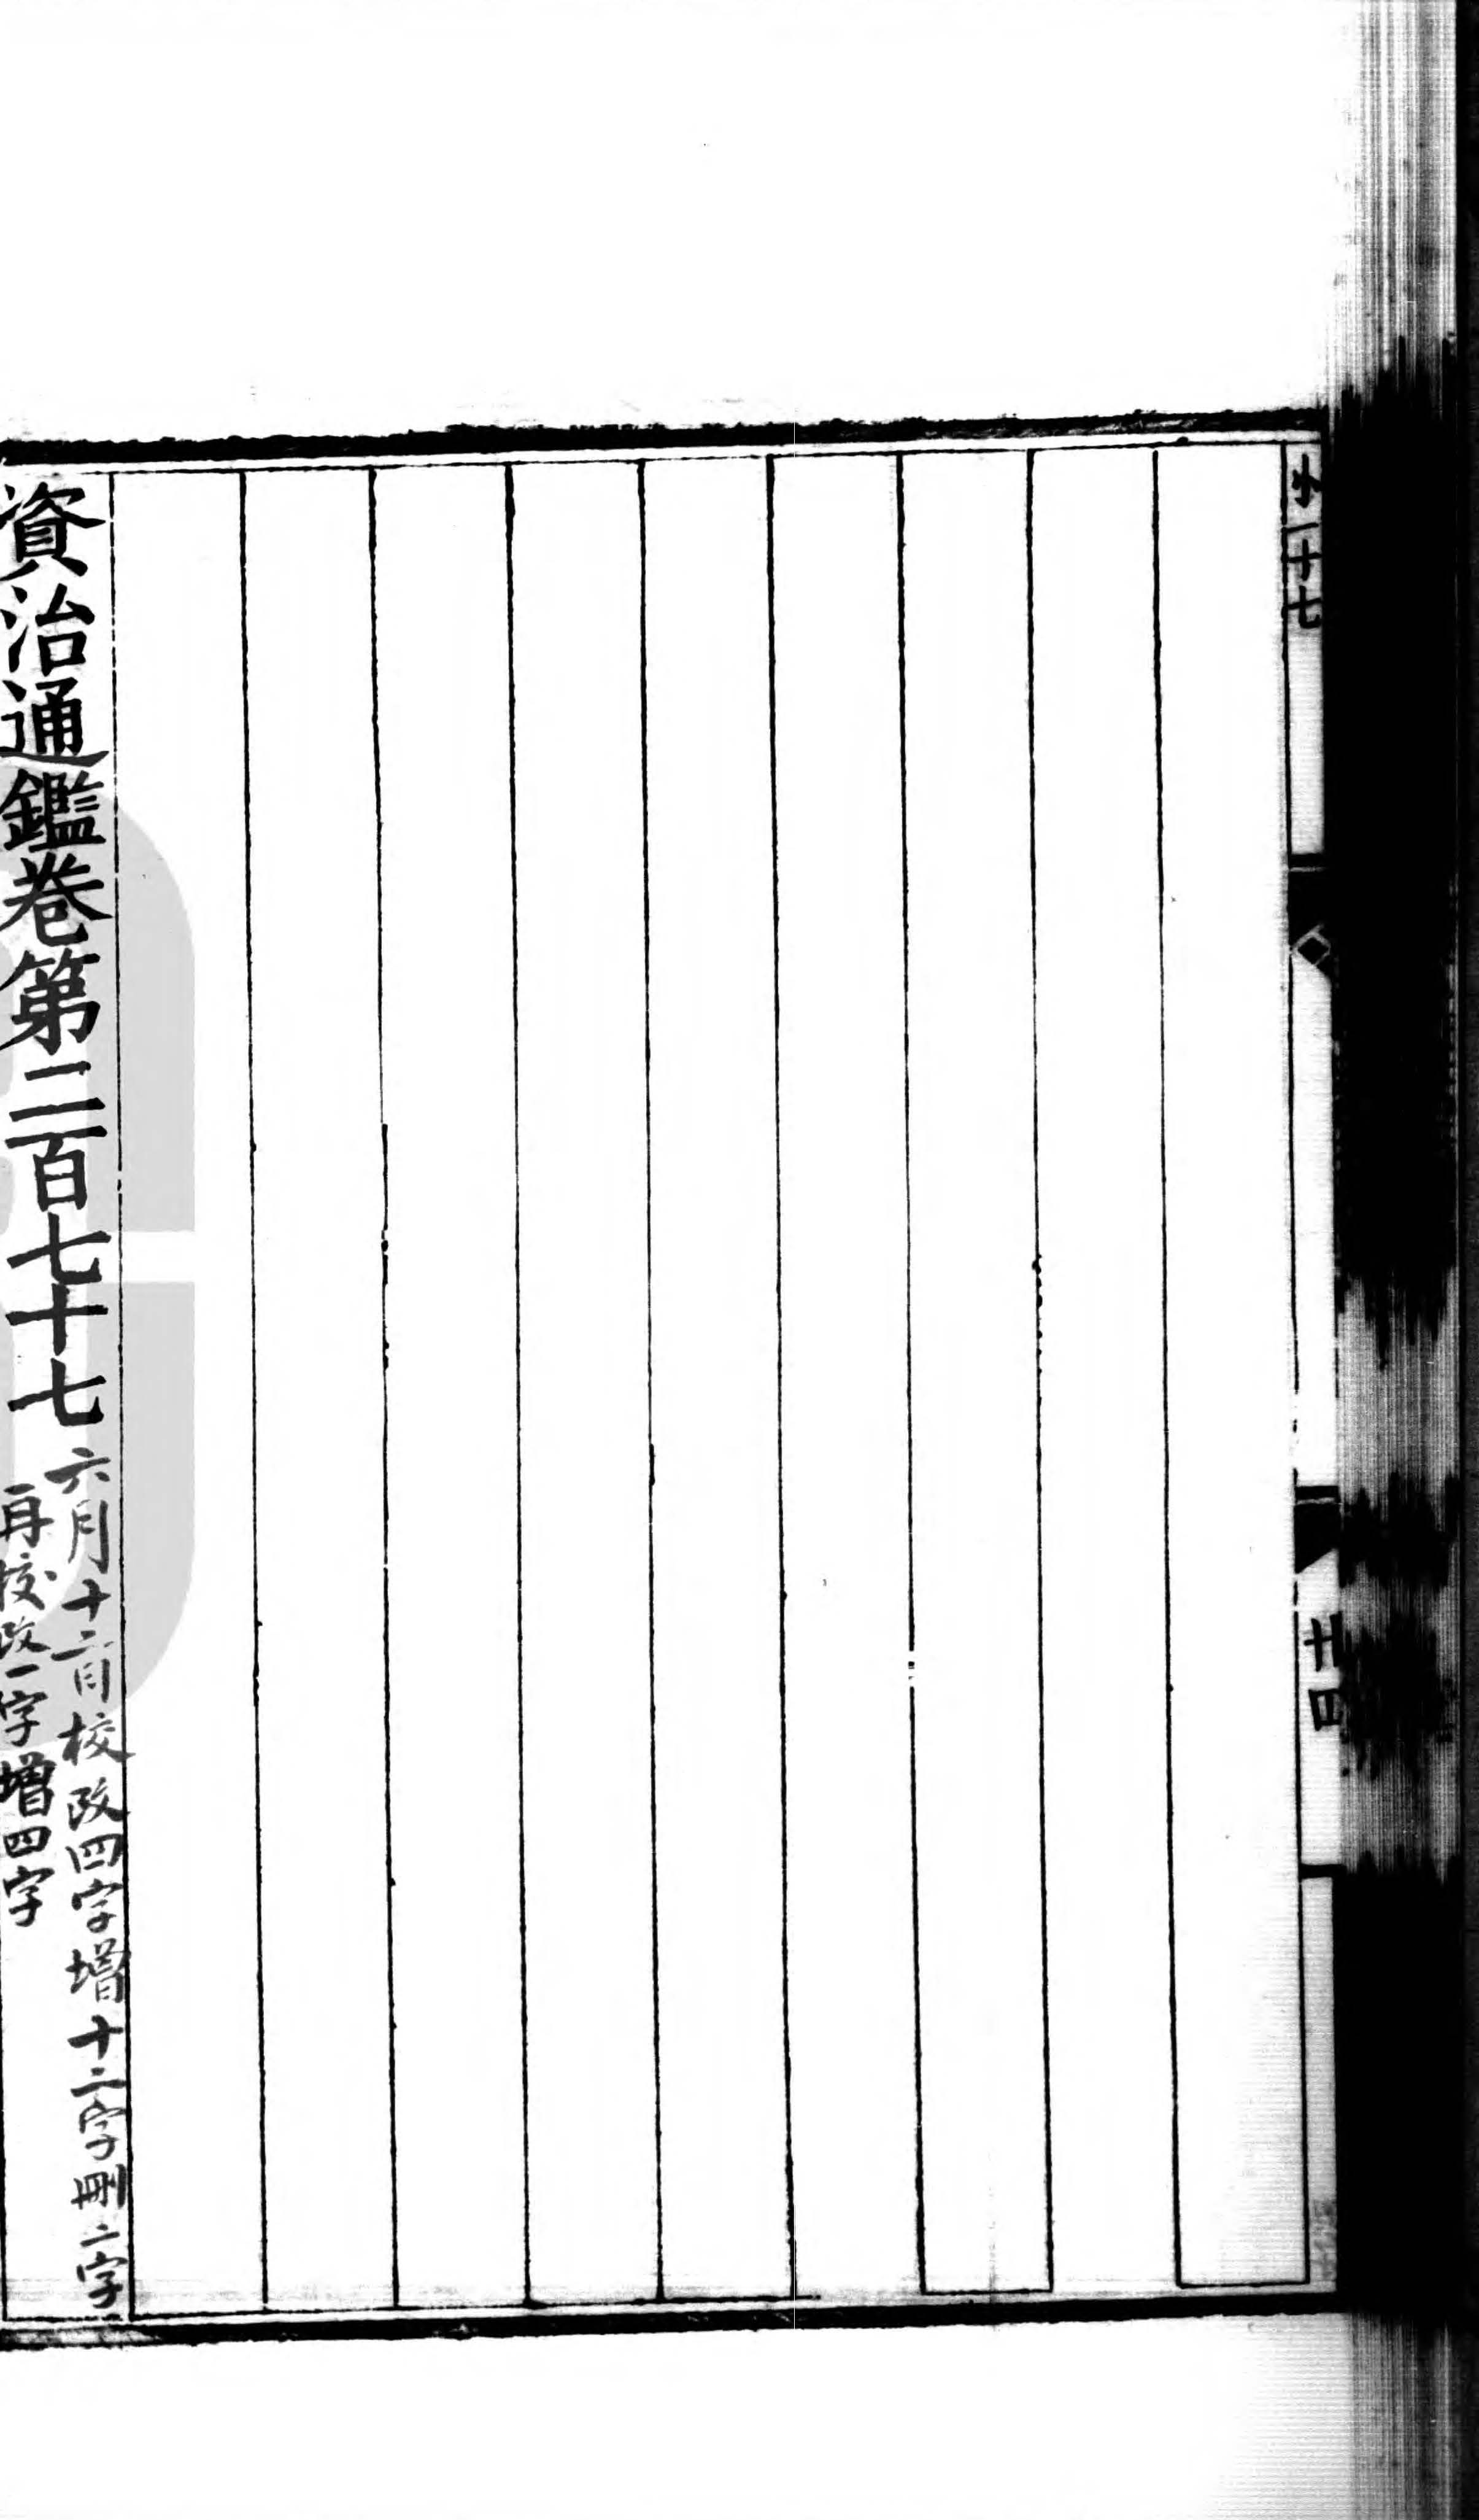 一十七
廿四
資治通鑑卷第二百七十七
六月十六日校改四字增十二字刪二字
再校改一字增四字